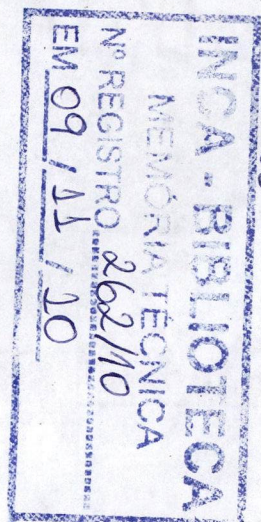 INCA - BIBLIOTECA
MEMÓRIA TÉCNICA
Nº REGISTRO 262/10
EM 09 / 11 / 10